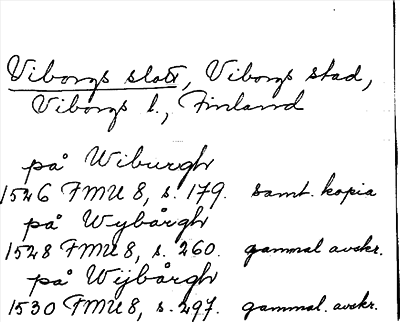 Viborgs slott, Viborgs stad,
Viborgs l., Finland
på Wiburgh
1526 FMU 8, s. 179. samt. kopia
på Wybårgh
1528 FMU 8, s. 260. gammal avskr.
på Wijbårgh
1530 FMU 8, s. 297. gammal. avskr.